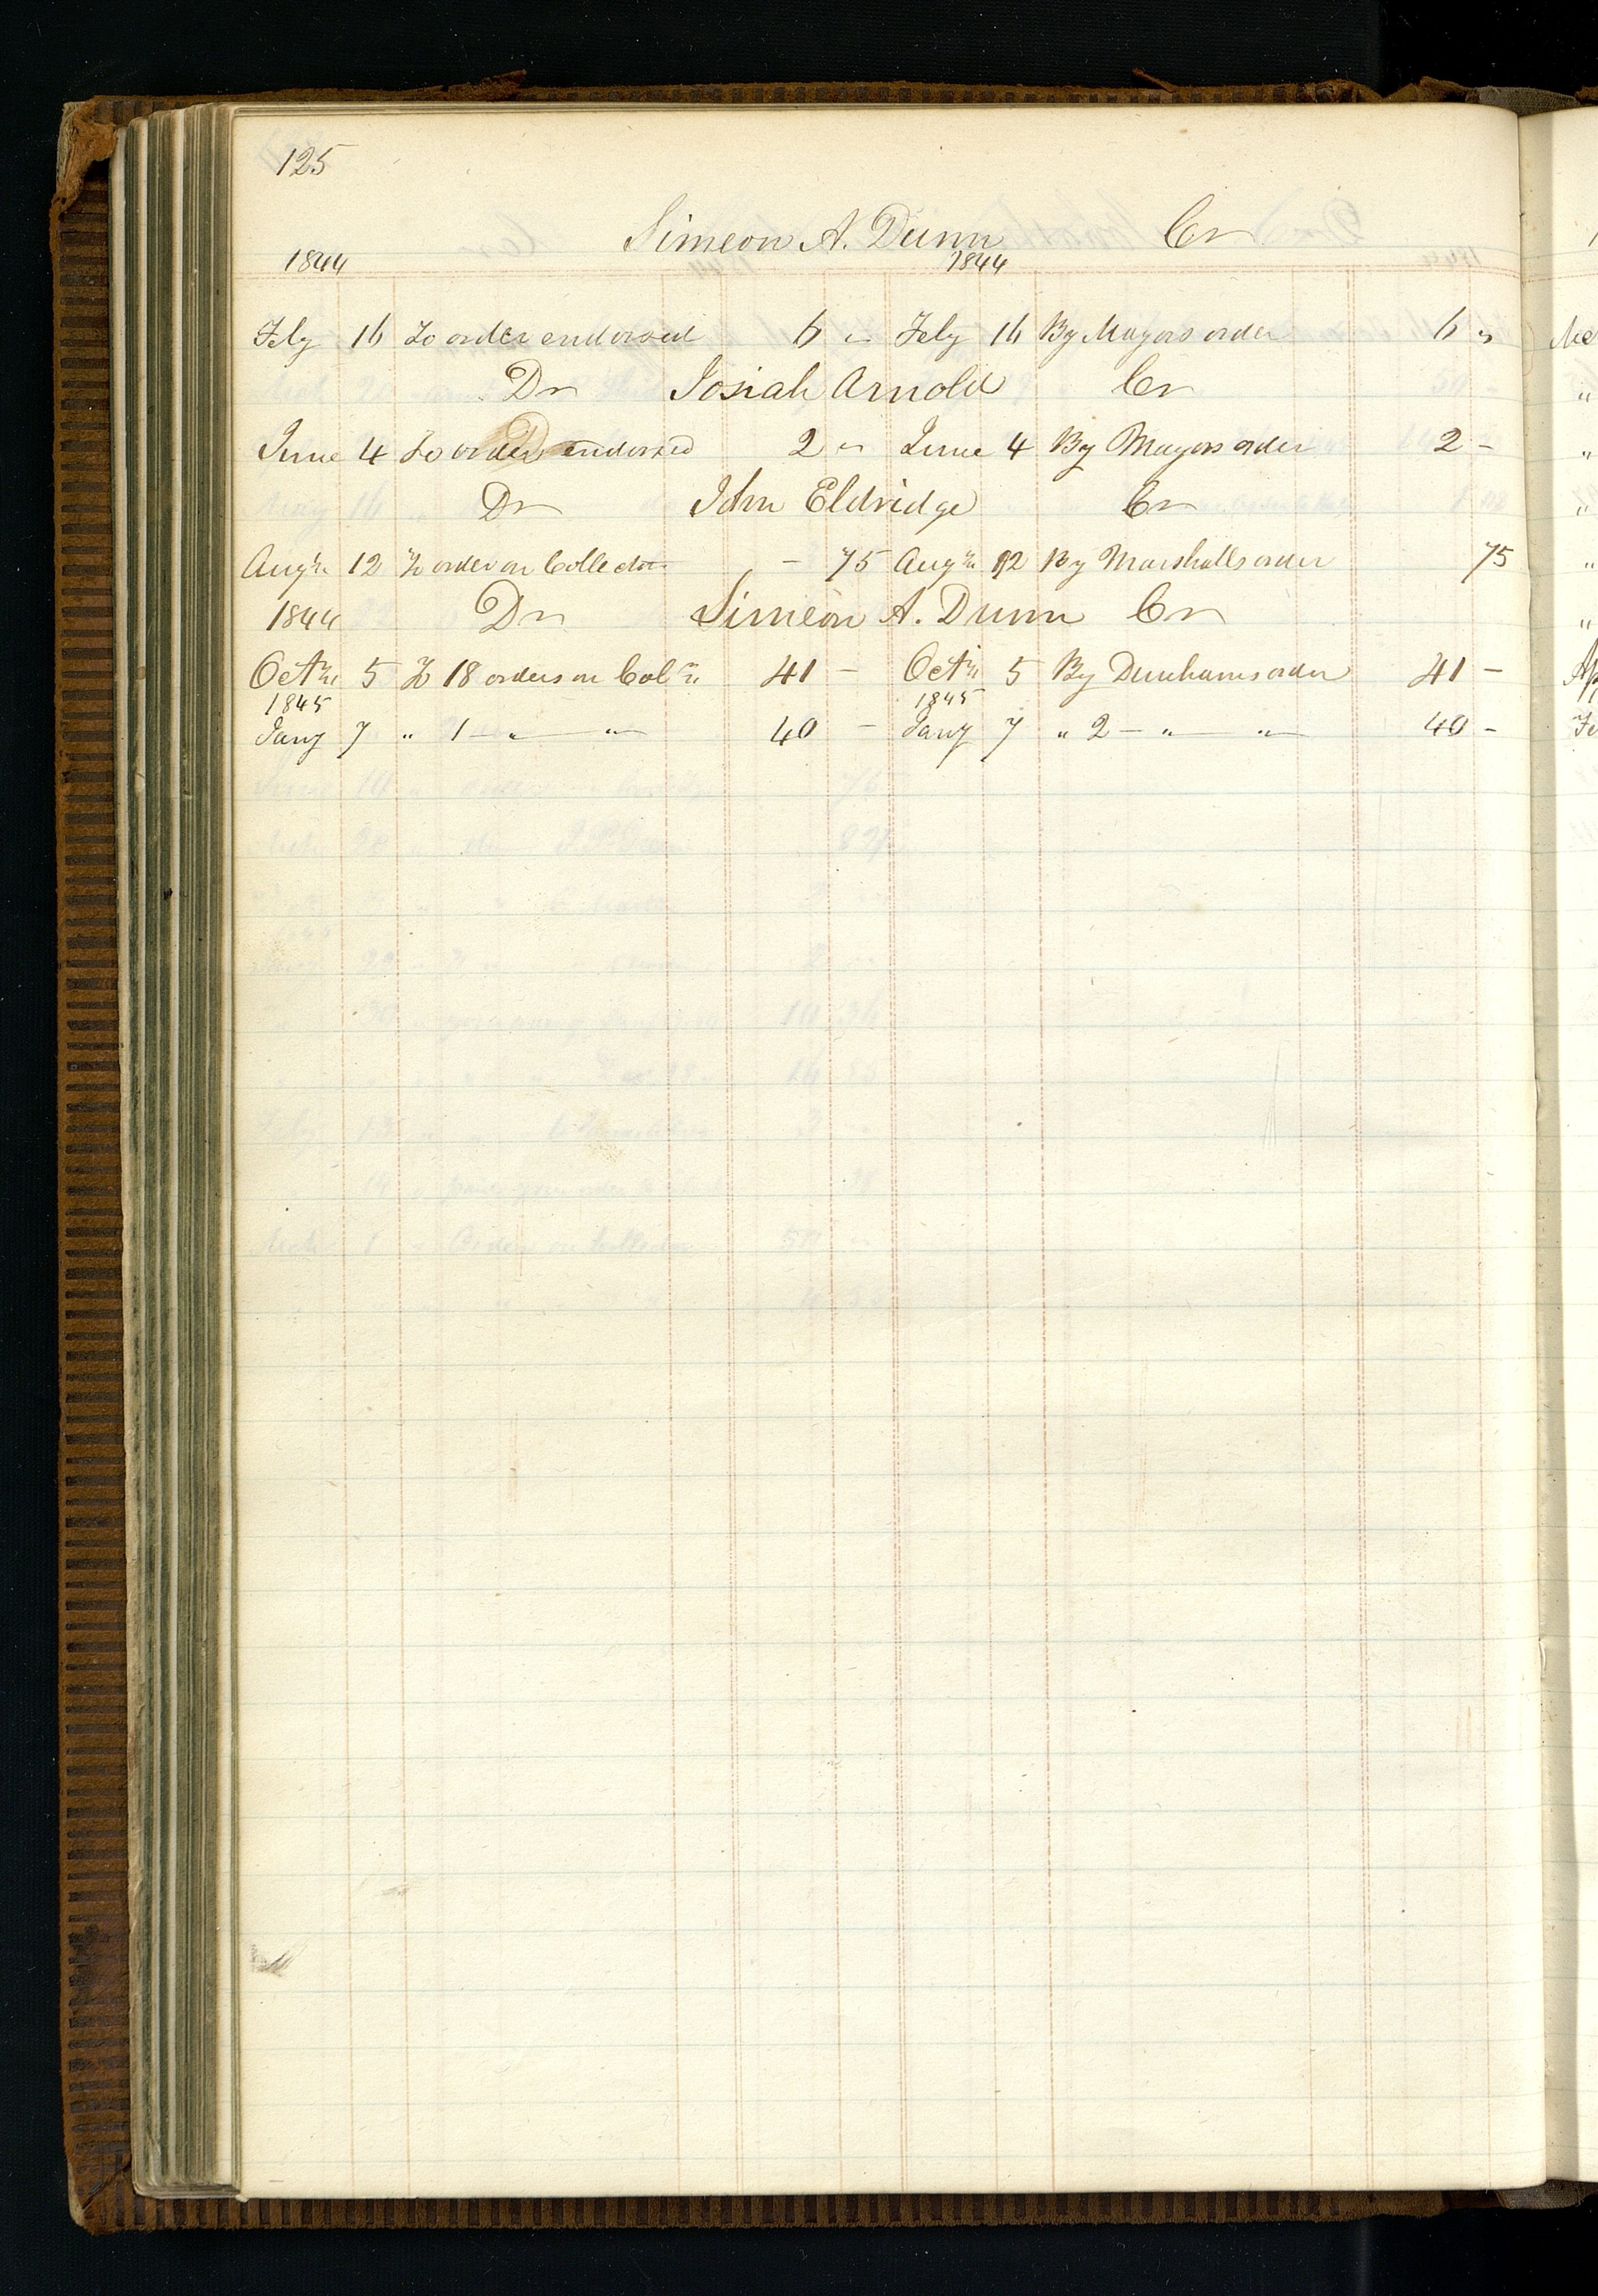 125
Simeon A. Dunn Cr
1844 1844
Feby 16 To order endorsed 6 " Feby 16 By Mayors order 6 "
Dr Josiah Arnold Cr
June 4 To order endorsed 2 " June 4 By Mayors order 2 -
Dr John Eldridge Cr
Augt 12 To order on Collector - 75 Augt 12 By Marshalls order 75
1844 Dr Simeon A. Dunn Cr
Octr 5 To 18 orders on Colr 41 - Octr 5 By Dunhams order 41 -
1845 1845
Jany 7 " 1 - " - " 40 - Jany 7 " 2 - " - " 40 -